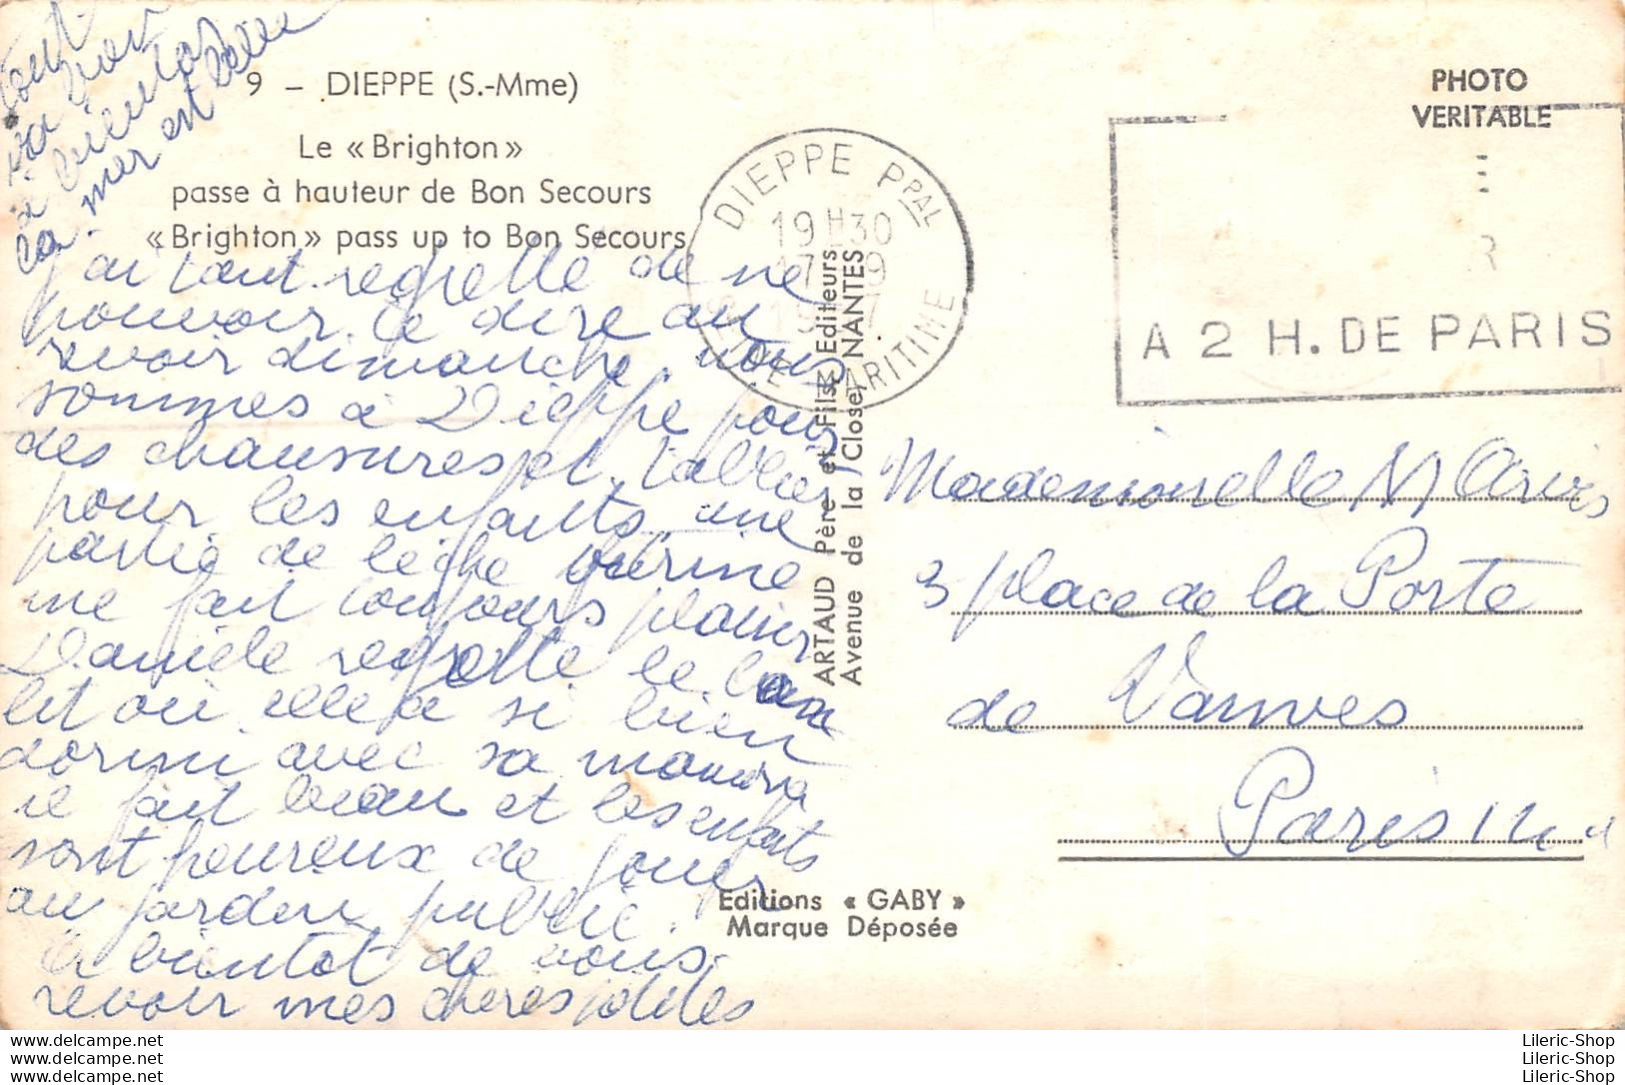 9 – DIEPPE (S.-Mme)
Le « Brighton »
passe à hauteur de Bon Secours
« Brighton » pass up to Bon Secours
j'ai tant regretté de ne
pouvoir te dire au
revoir dimanche. nous
sommes à Dieppe pour
des chaussures et tablier
pour les enfants. une
partie de lèche vitrine
me fait toujours plaisir
Danièle regrette le
lit où elle a si bien
dormi avec sa
il fait beau et les enfants
sont heureux de jouer
au jardin public.
à bientot de vous
revoir mes cheres
à bientot
la mer est belle
DIEPPE PPAL
19H30
SEINE MARITIME
PHOTO
VERITABLE
A 2 H. DE PARIS
ARTAUD Père et Fils, Editeurs
Avenue de la Close, NANTES
Mademoiselle M
3 place de la Porte
de Vanves
Paris
Editions « GABY »
Marque Déposée
www.delcampe.net
www.delcampe.net
www.delcampe.net
Lileric-Shop
Lileric-Shop
Lileric-Shop